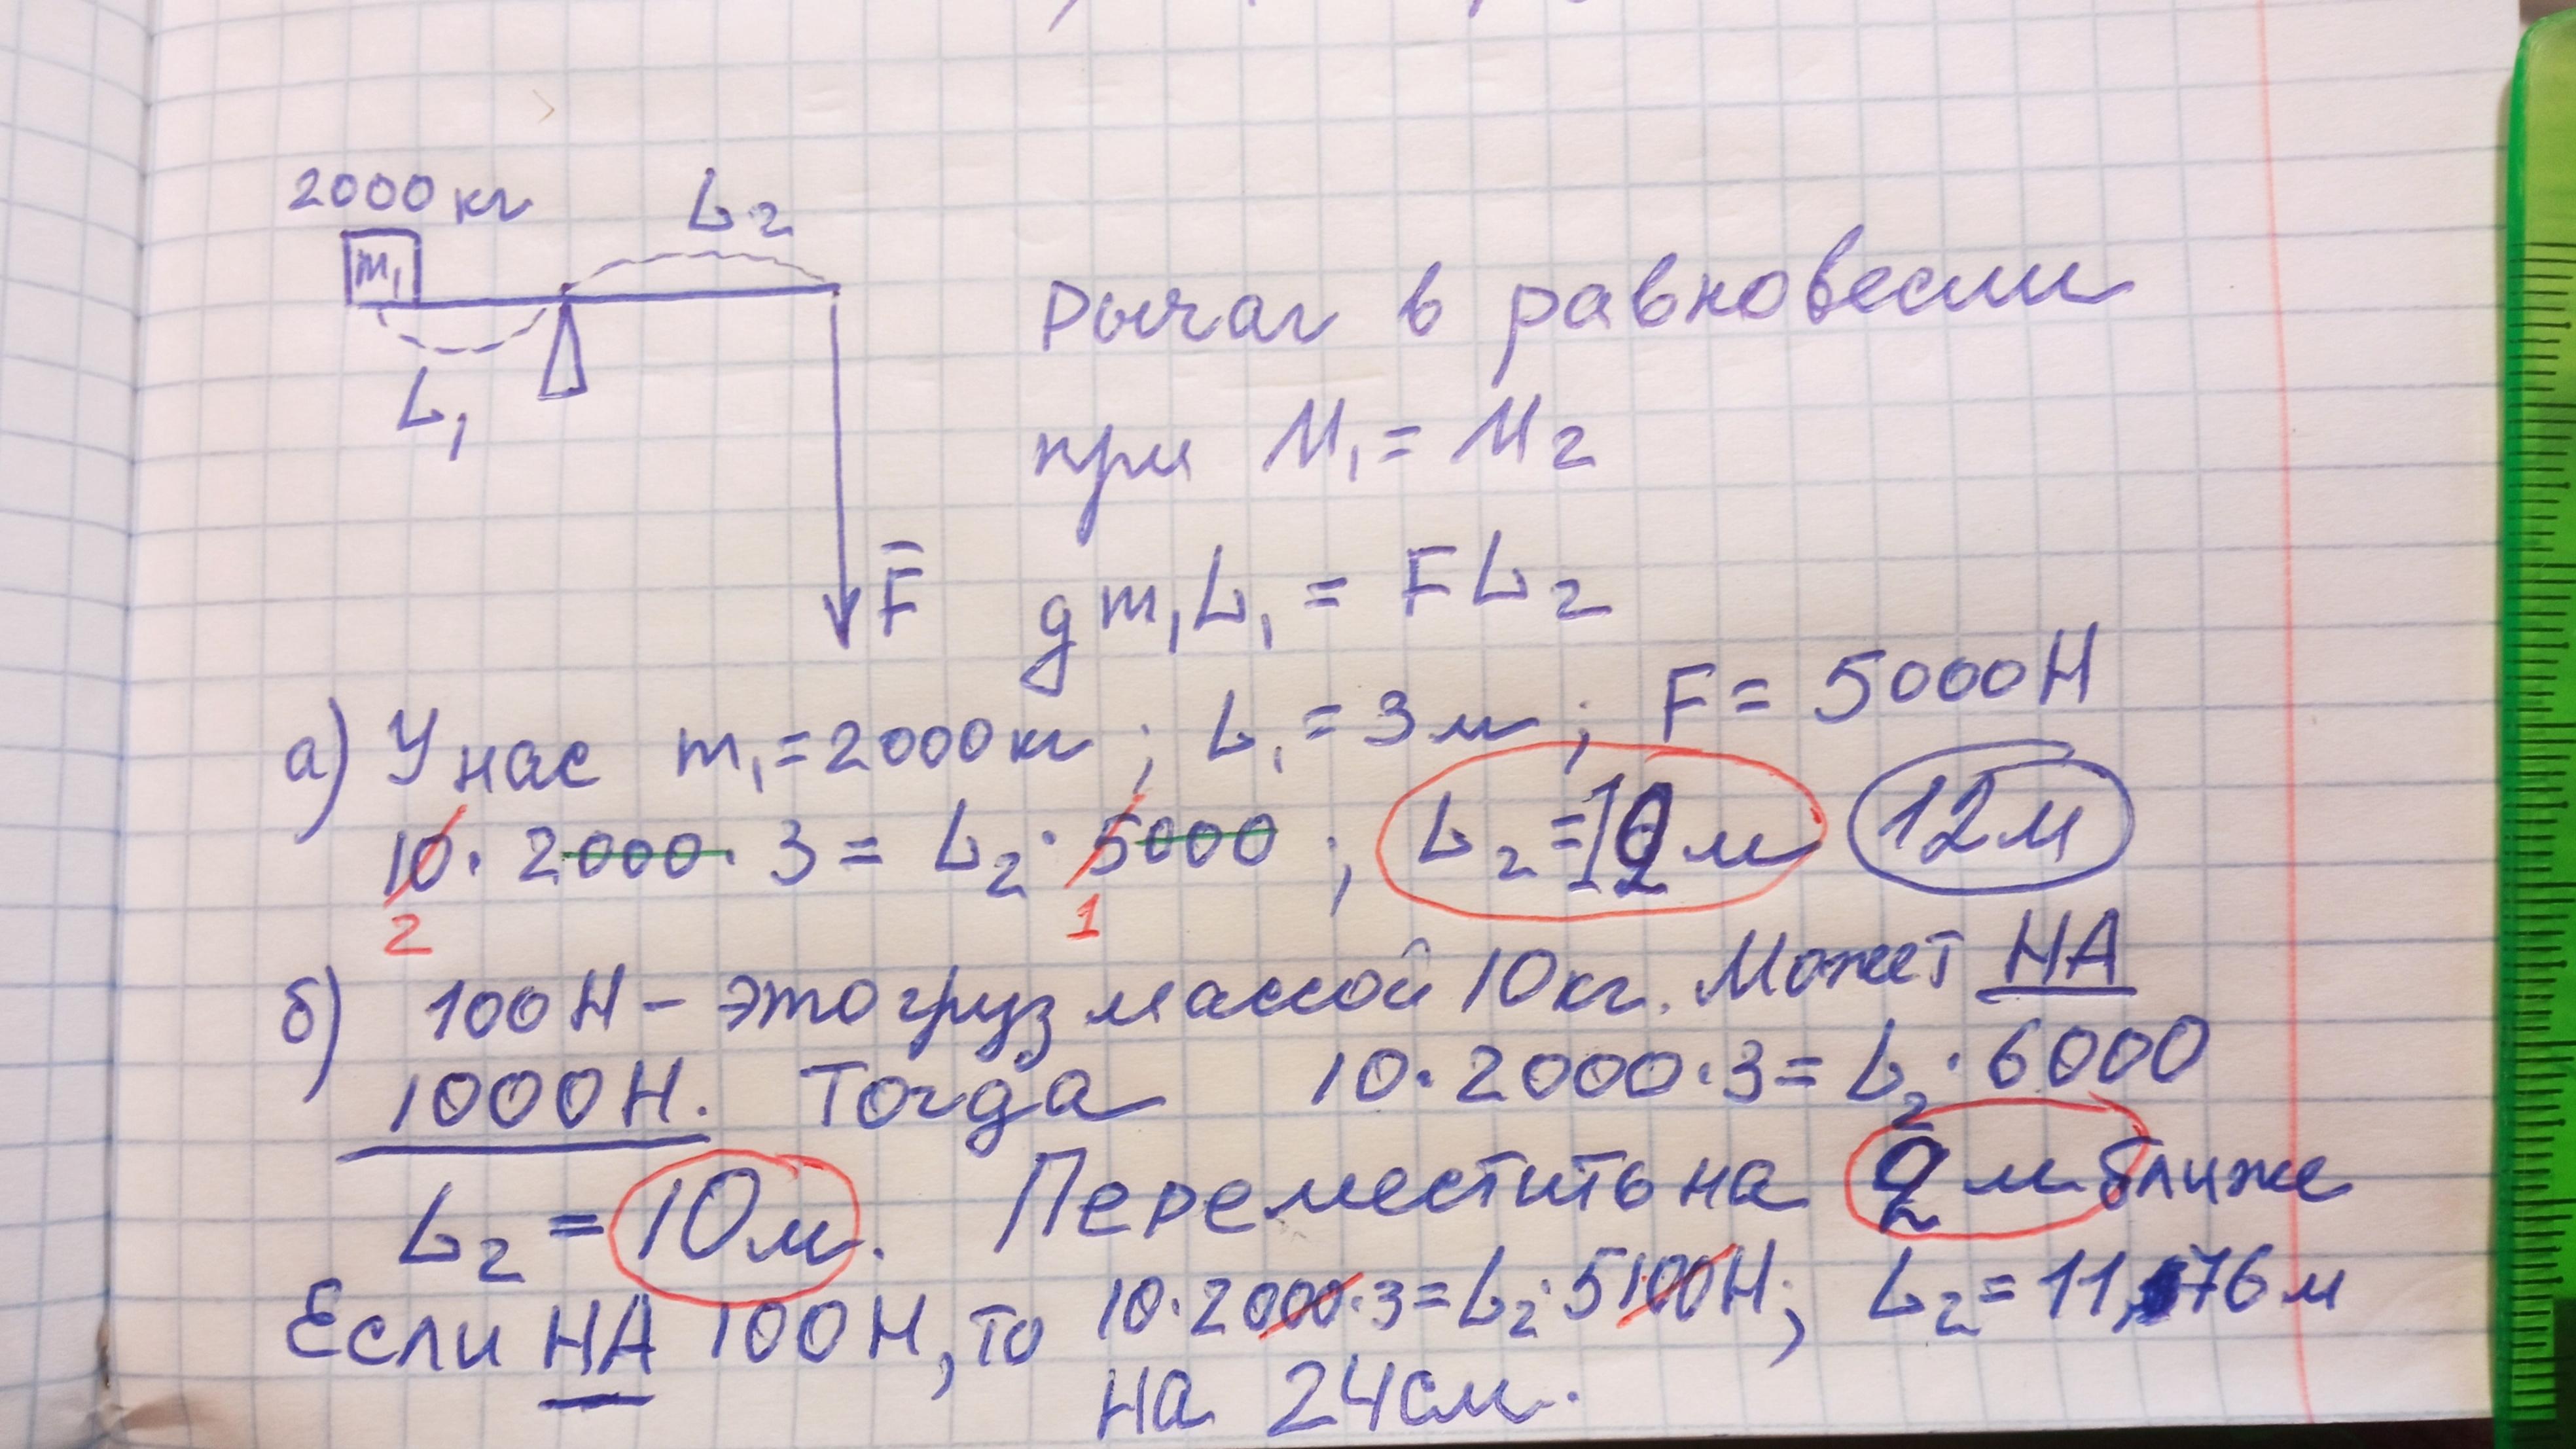 2000 кг
m₁
L₂
L₁
F̅
Рычаг в равновесии
при M₁ = M₂
g m₁ L₁ = F L₂
а) У нас m₁ = 2000 кг ; L₁ = 3 м ; F = 5000 Н
10 · 2000 · 3 = L₂ · 5000 ; L₂ = 12 м 12 м
2 1
б) 100 Н – это груз массой 10 кг. Может НА
1000 Н. Тогда 10 · 2000 · 3 = L₂ · 6000
L₂ = 10 м. Переместить на 2 м ближе
Если НА 100 Н, то 10 · 2000 · 3 = L₂ · 5100 Н ; L₂ = 11,76 м
на 24 см.